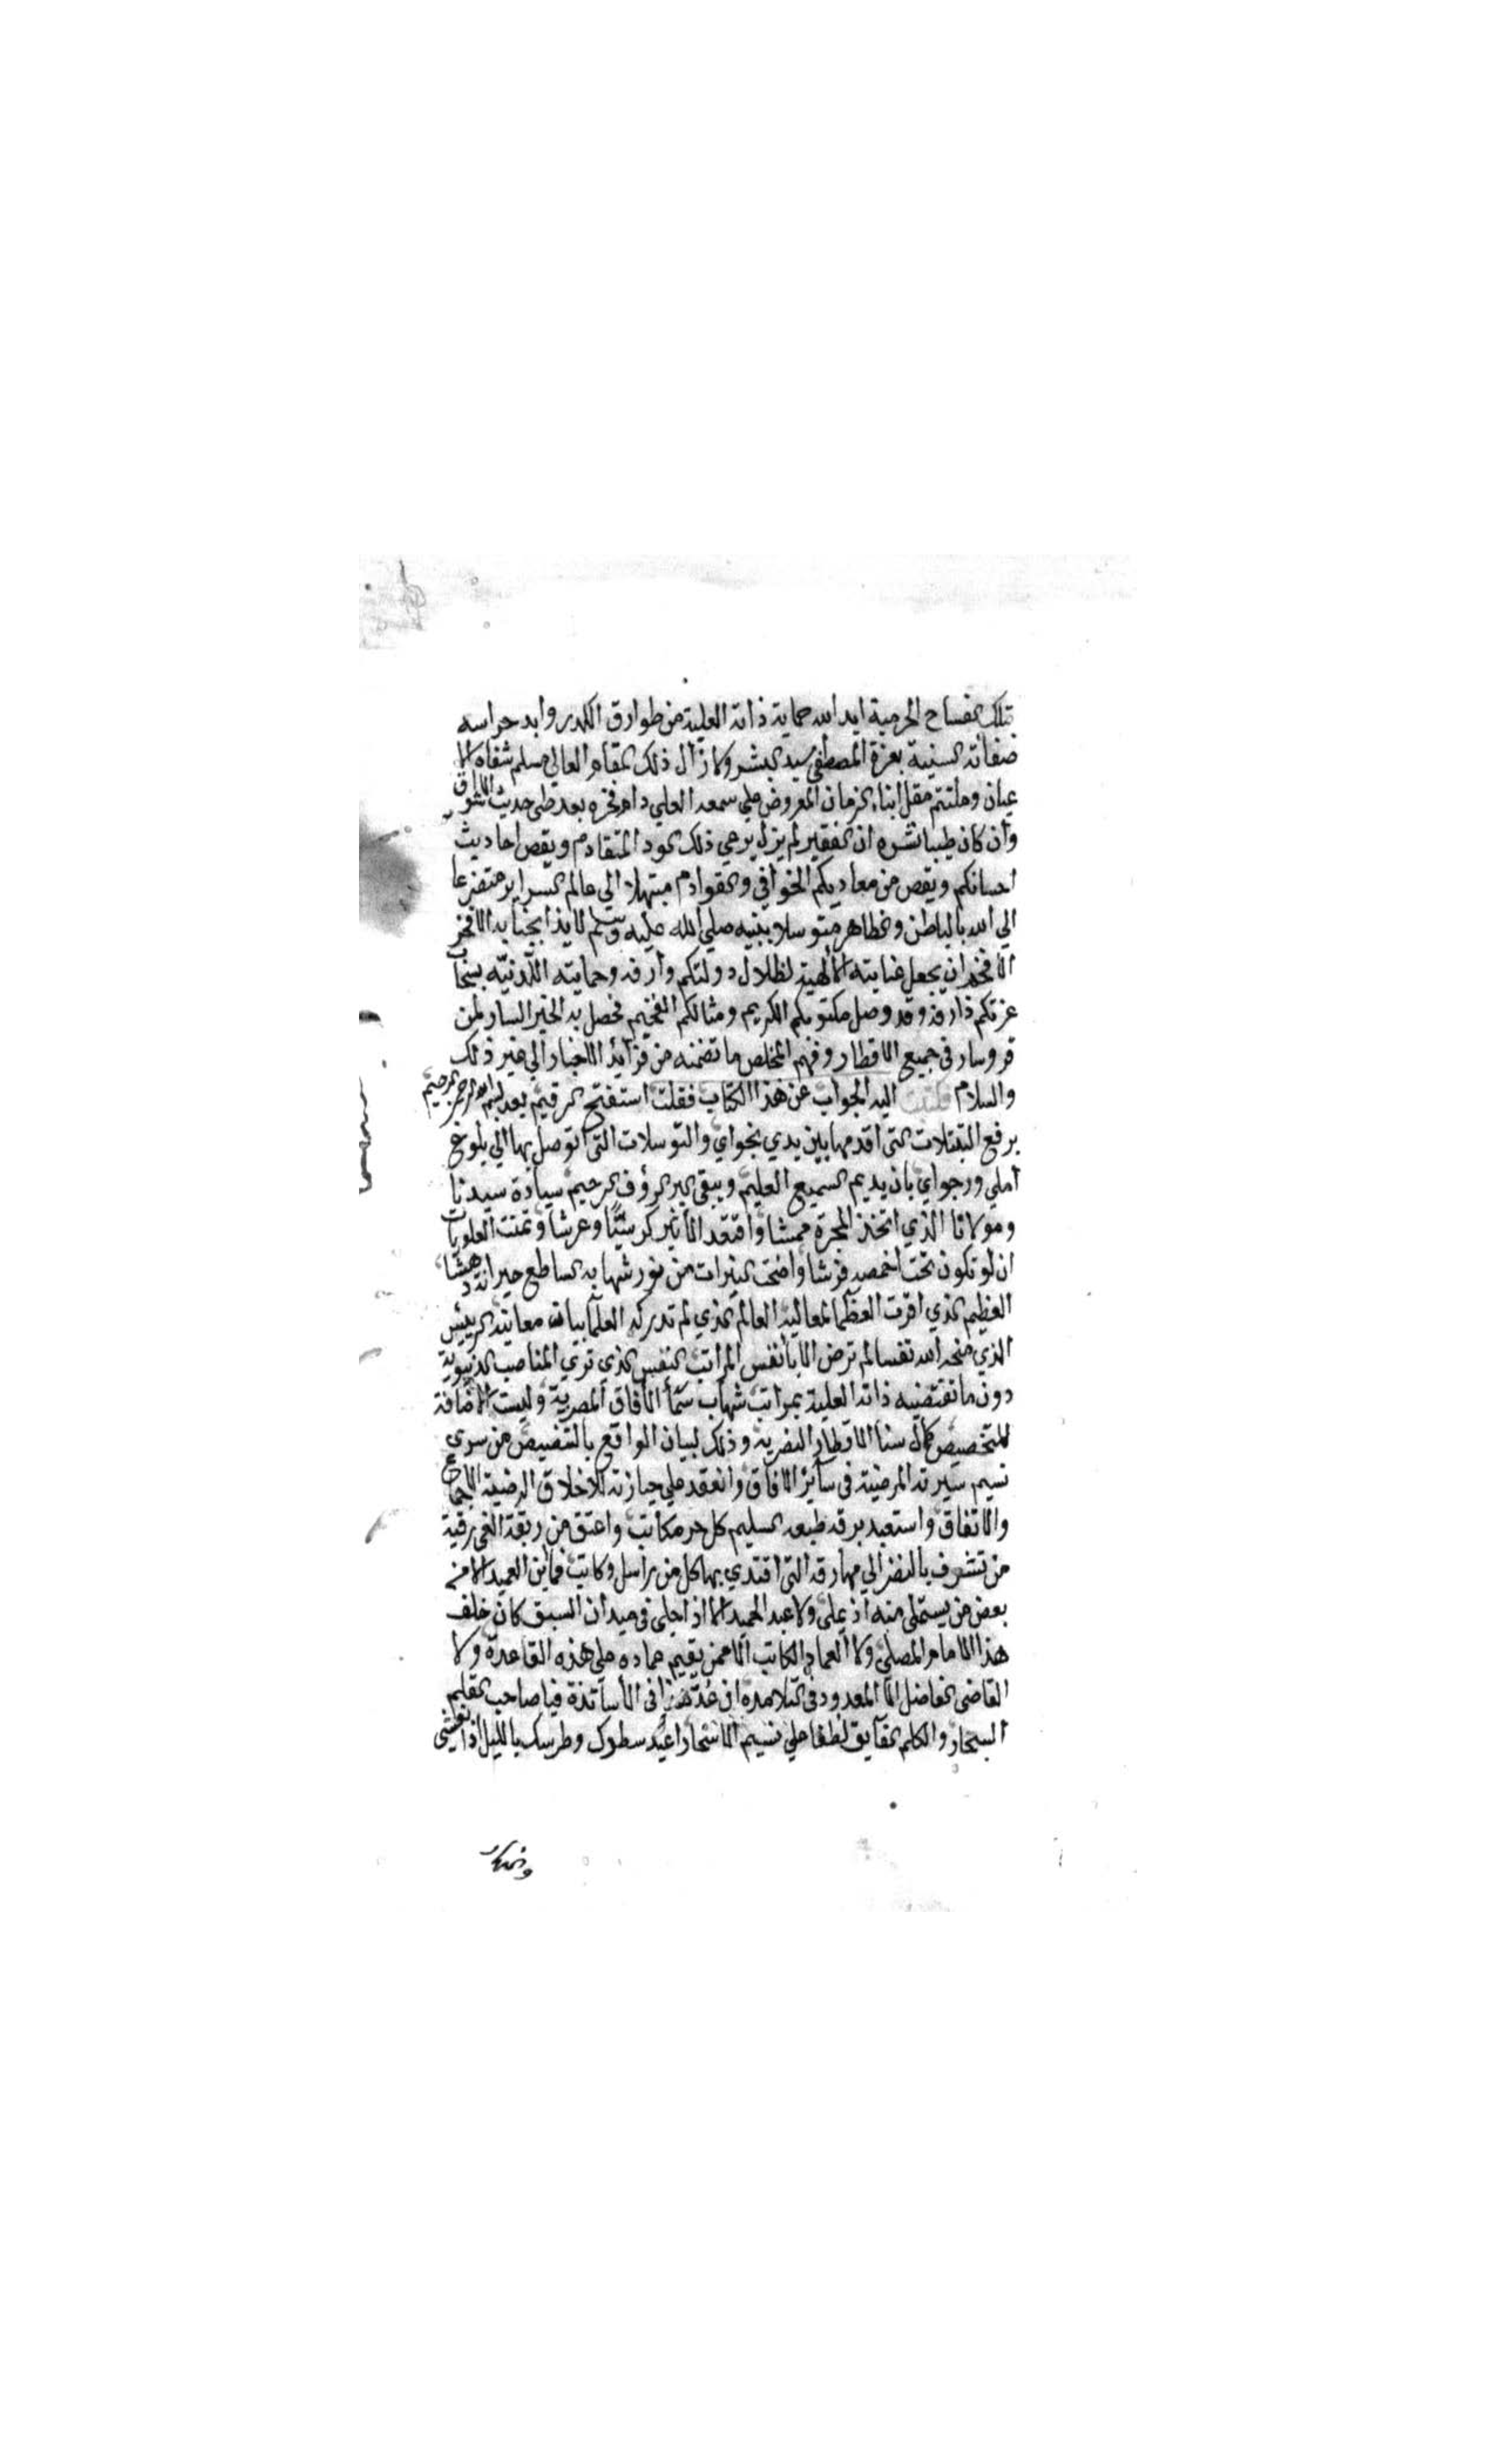 تلك الفساح الحرمية ايد الله حماية ذاته العلية من طوارق الكدر وأبد حراسه
صفاته السنية بعزة المصطفي سيد البشر ولا زال ذلك المقام العالي مسلم شفاه الا
عيان وملتثم مقل ابناء الزمان المعروض علي سمعه العلي دام فخره بعد طي حديث الاشواق
وأن كان طيبا نشره ان الفقير لم يزل يرعي ذلك الود المتقادم ويقص احاديث
احسانكم ويقص من معاديكم الخوافي والقوادم مبتهلا الي عالم السراير متضرعا
الي الله بالباطن والظاهر متوسلا بنبيه صلي الله عليه وسلم لايذا بجنابه الافخر
الافخم ان يجعل عنايته الالهية لظلال دولتكم وارفه وحمايته اللدنيّه بسحاب
عزتكم ذارفه وقد وصل مكتوبكم الكريم ومثالكم الفخيم فحصل به الخير السار لمن
قر وسار في جميع الاقطار وفهم المخلص ما تضمنه من فرايد الاخبار الي غير ذلك
والسلام فكتبت اليه الجواب عن هذا الكتاب فقلت استفتح الرقيم بعد بسم الله الرحمن الرحيم
برفع التبتلات التي اقدمها بين يدي نجواي والتوسلات التي اتوصل بها الي بلوغ
أملي ورجواي بان يديم السميع العليم ويبقي البر الرؤف الرحيم سيادة سيدنا
ومولانا الذي اتخذ المجرة ممشا واقتعد الاثير كرسيًّا وعرشا وتمنت العلويات
ان لو تكون تحت اخمصه فرشا واضحت النيرات من نور شهابه الساطع حيرا ندهشا
العظيم الذي اقرت العظما لمعاليه العالم الذي لم تدرك العلما بيان معانيه الرييس
الذي منحه الله نفسا لم ترض الا بانفس المراتب النفيس الذي تري المناصب الدنيوية
دون ما تقتضيه ذاته العلية بمراتب شهاب سما الافاق المصرية وليست الاضافة
للتخصيص كمال سنا الاقطار النضرية وذلك لبيان الواقع بالتنصيص من سري
نسيم سيرته المرضية في ساير الافاق وانعقد علي حيازته للاخلاق الرضية الاجماع
والاتفاق واستعبد برقه طبعه السليم كل حر مكاتب واعتق من ربقة الغي رقية
من تشرف بالنضر الي مهارقه التي اقتدي بها كل من راسل وكاتب فما ابن العميد الا من
بعض من يستملي منه اذ يملي ولا عبد الحميد الا اذا جلي في ميدان السبق كان خلف
هذا الامام المصلي ولا العماد الكاتب الا ممن يقيم عماده علي هذه القاعدة ولا
القاضي الفاضل الا المعدود في التلامده ان عُدّ هذا في الأساتذة فيا صاحب القلم
السحار والكلم الفايق لطفا علي نسيم الاسحار اعيذ سطورك وطرسك بالليل اذا يغشي